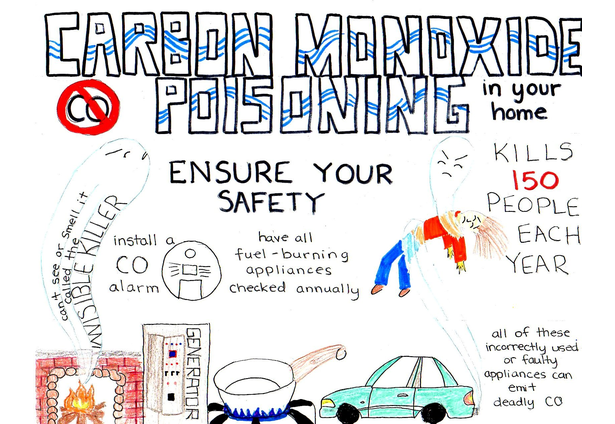 CARBON MONOXIDE
POISONING
in your
home
CO
ENSURE YOUR
SAFETY
KILLS
150
PEOPLE
EACH
YEAR
can't see or smell it
called the
INVISIBLE KILLER
install a
CO
alarm
have all
fuel-burning
appliances
checked annually
GENERATOR
all of these
incorrectly used
or faulty
appliances can
emit
deadly CO